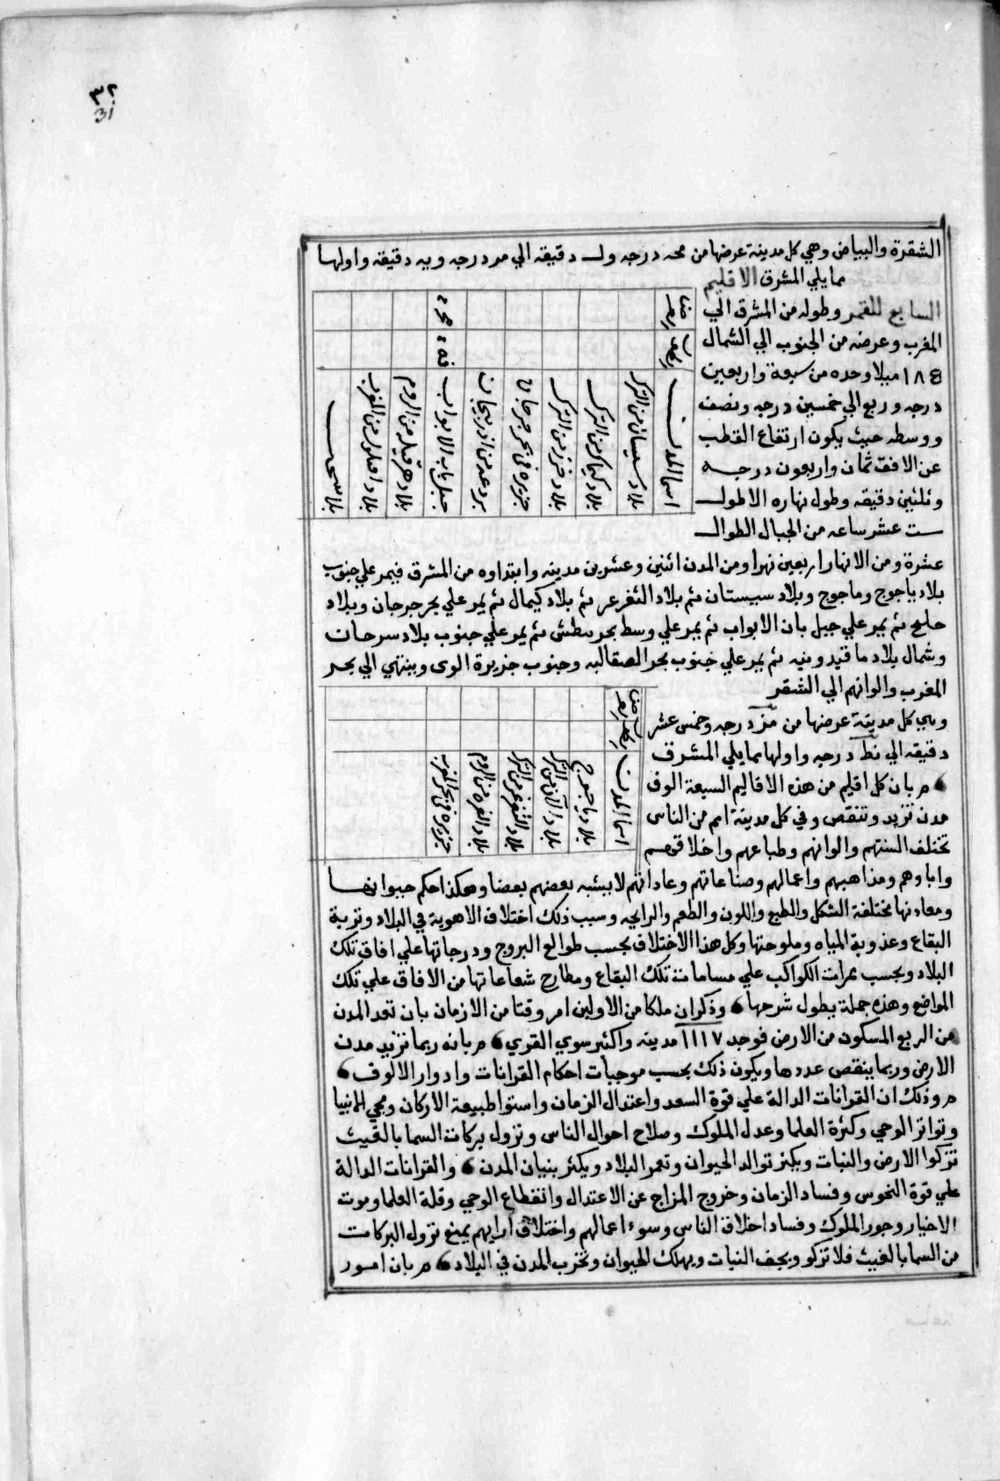 ٣٢
31
الشقرة والبياض وهي كل مدينة عرضها من محه درجه ولـ دقيقه الي مر درجه ويه دقيقه واولها
مما يلي المشرق الاقليم
السابع للقمر وطوله من المشرق الي
المغرب وعرضه من الجنوب الي الشمال
١٨٤ ميلا وحده من سبعة واربعين
درجه وربع الي خمسين درجه ونصف
ووسطه حيث يكون ارتفاع القطب
عن الافق ثمان واربعون درجه
وثلثين دقيقه وطول نهاره الاطول
ست عشر ساعه من الجبال الطوال
اسما المدن
بلاد سيسان من الترك
بلاد كيماك من الترك
بلاد خزر من الترك
جزيره في بحر جرجان
بردعه من اذربيجان
جبل باب الابواب
بلاد هرقيله من الروم
بلاد من الغرب
بلا
عشرة ومن الانهار اربعين نهرا ومن المدن اثنين وعشرين مدينه وابتداوه من المشرق فيمر علي جنوب
بلاد ياجوج وماجوج وبلاد سيستان ثم بلاد التغرغر ثم بلاد كيمال ثم يمر علي بحر جرجان وبلاد
حليج ثم يمر علي جبل بان الابواب ثم يمر علي وسط بحر بيطش ثم يمر علي جنوب بلاد سرحان
وشمال بلاد ماقيدونيه ثم يمر علي جنوب بحر الصقالبه وجنوب جزيرة الوى وينتهي الي بحر
المغرب والوانهم الي الشقر
وهي كل مدينة عرضها من مز درجه وخمس عشر
دقيقه الي نط درجه واولها مما يلي المشرف
م بان كل اقليم من هذه الاقاليم السبعة الوف
مدن تزيد وتنقص وفي كل مدينة امم من الناس
تختلف السنتهم والوانهم وطباعهم واخلاقهم
اسما المدن
بلاد ياجوج
بلاد من الترك
بلاد التغرغر من الترك
بلاد من الروم
جزيره في بحر المغرب
واباوهم ومذاهبهم واعمالهم وصناعاتهم وعاداتهم لا يشبه بعضهم بعضا وهكذا حكم حيوانها
ومعادنها مختلفة الشكل والطبع واللون والطعم والرايحه وسبب ذلك اختلاف الاهوية في البلاد وتربة
البقاع وعذوبة المياه وملوحتها وكل هذا الاختلاف بحسب طوالع البروج ودرجاتها علي افاق تلك
البلاد وبحسب ممرات الكواكب علي مسامات تلك البقاع ومطارح شعاعاتها من الافاق علي تلك
المواضع وهذه جملة يطول شرحها وذكر ان ملكا من الاولين امر وقتا من الازمان بان تعد المدن
من الربع المسكون من الارض فوجد ١١١٧ مدينه واكثر سوي القري م بانه ربما تزيد مدن
الارض وربما ينقص عددها ويكون ذلك بحسب موجبات احكام القرانات وادوار الالوف
م وذلك ان القرانات الدالة علي قوة السعد واعتدال الزمان واستوا طبيعة الاركان ومجي الانبيا
وتواتر الوحي وكثرة العلما وعدل الملوك وصلاح احوال الناس ونزول بركات السما بالغيث
تزكوا الارض والنبات ويكثر توالد الحيوان وتعمر البلاد ويكثر بنيان المدن والقرانات الدالة
علي قوة النحوس وفساد الزمان وخروج المزاج عن الاعتدال وانقطاع الوحي وقلة العلما وموت
الاخيار وجور الملوك وفساد اخلاق الناس وسوء اعمالهم واختلاف ارايهم يمنع نزول البركات
من السما بالغيث فلا تزكو ويجف النبات ويهلك الحيوان وتخرب المدن في البلاد م بان امور